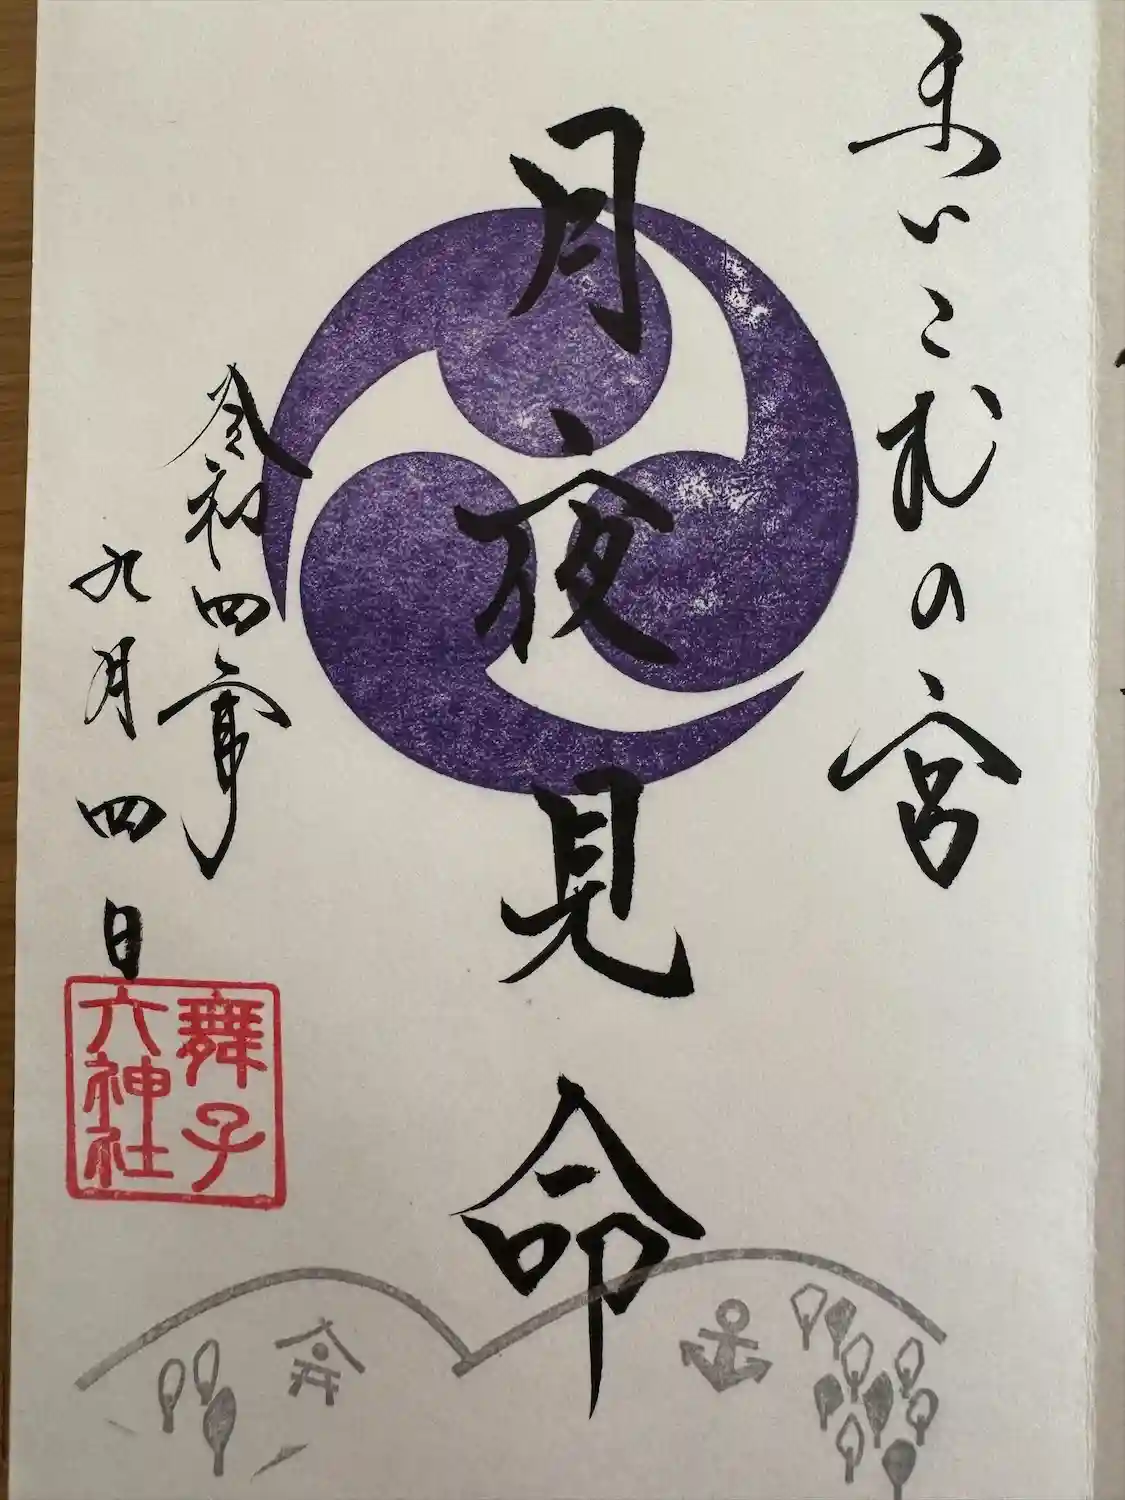 まいこむの宮
月夜見命
令和四年
九月四日
舞子
六神社